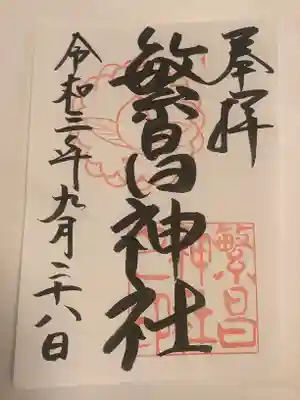 奉拝
繁昌神社
令和三年九月二十八日
繁昌
神社